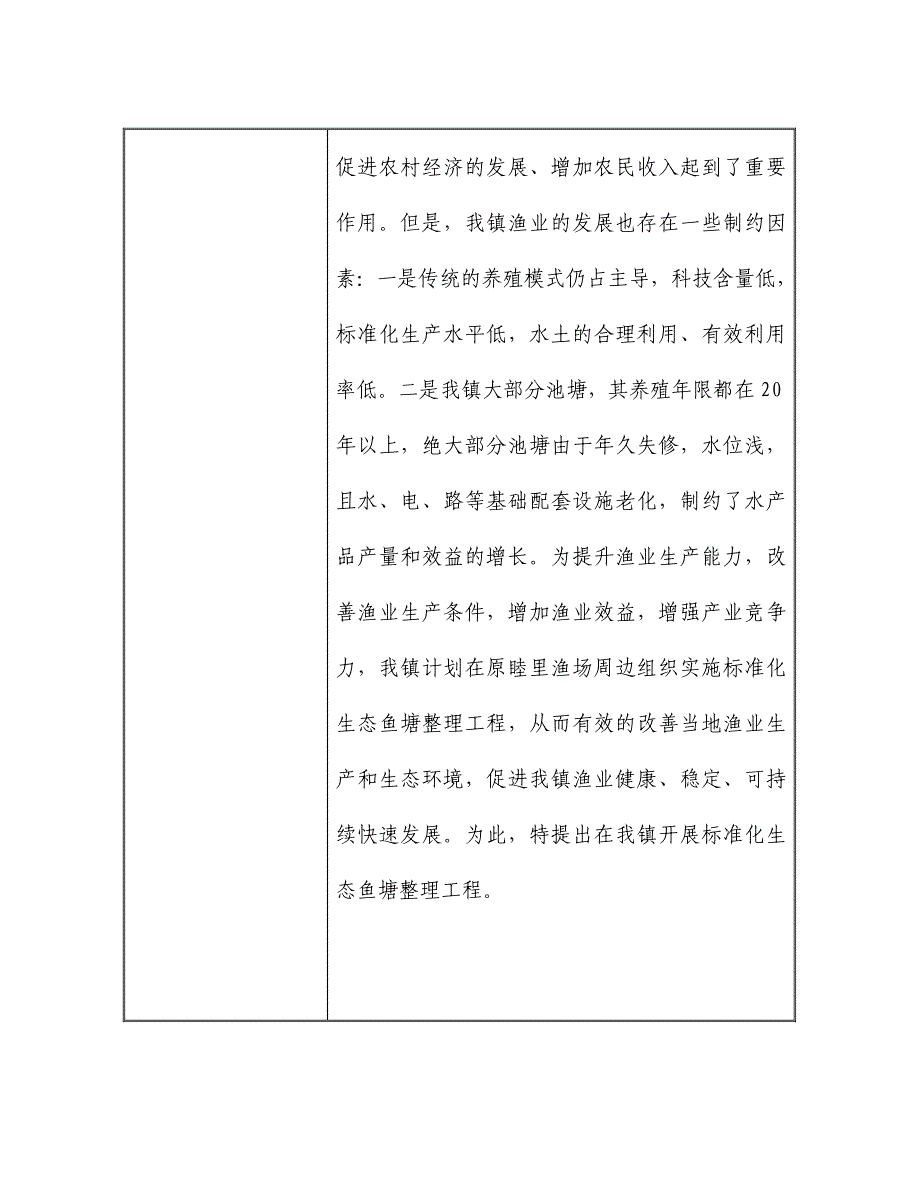 促进农村经济的发展、增加农民收入起到了重要
作用。但是，我镇渔业的发展也存在一些制约因
素：一是传统的养殖模式仍占主导，科技含量低，
标准化生产水平低，水土的合理利用、有效利用
率低。二是我镇大部分池塘，其养殖年限都在 20
年以上，绝大部分池塘由于年久失修，水位浅，
且水、电、路等基础配套设施老化，制约了水产
品产量和效益的增长。为提升渔业生产能力，改
善渔业生产条件，增加渔业效益，增强产业竞争
力，我镇计划在原睦里渔场周边组织实施标准化
生态鱼塘整理工程，从而有效的改善当地渔业生
产和生态环境，促进我镇渔业健康、稳定、可持
续快速发展。为此，特提出在我镇开展标准化生
态鱼塘整理工程。